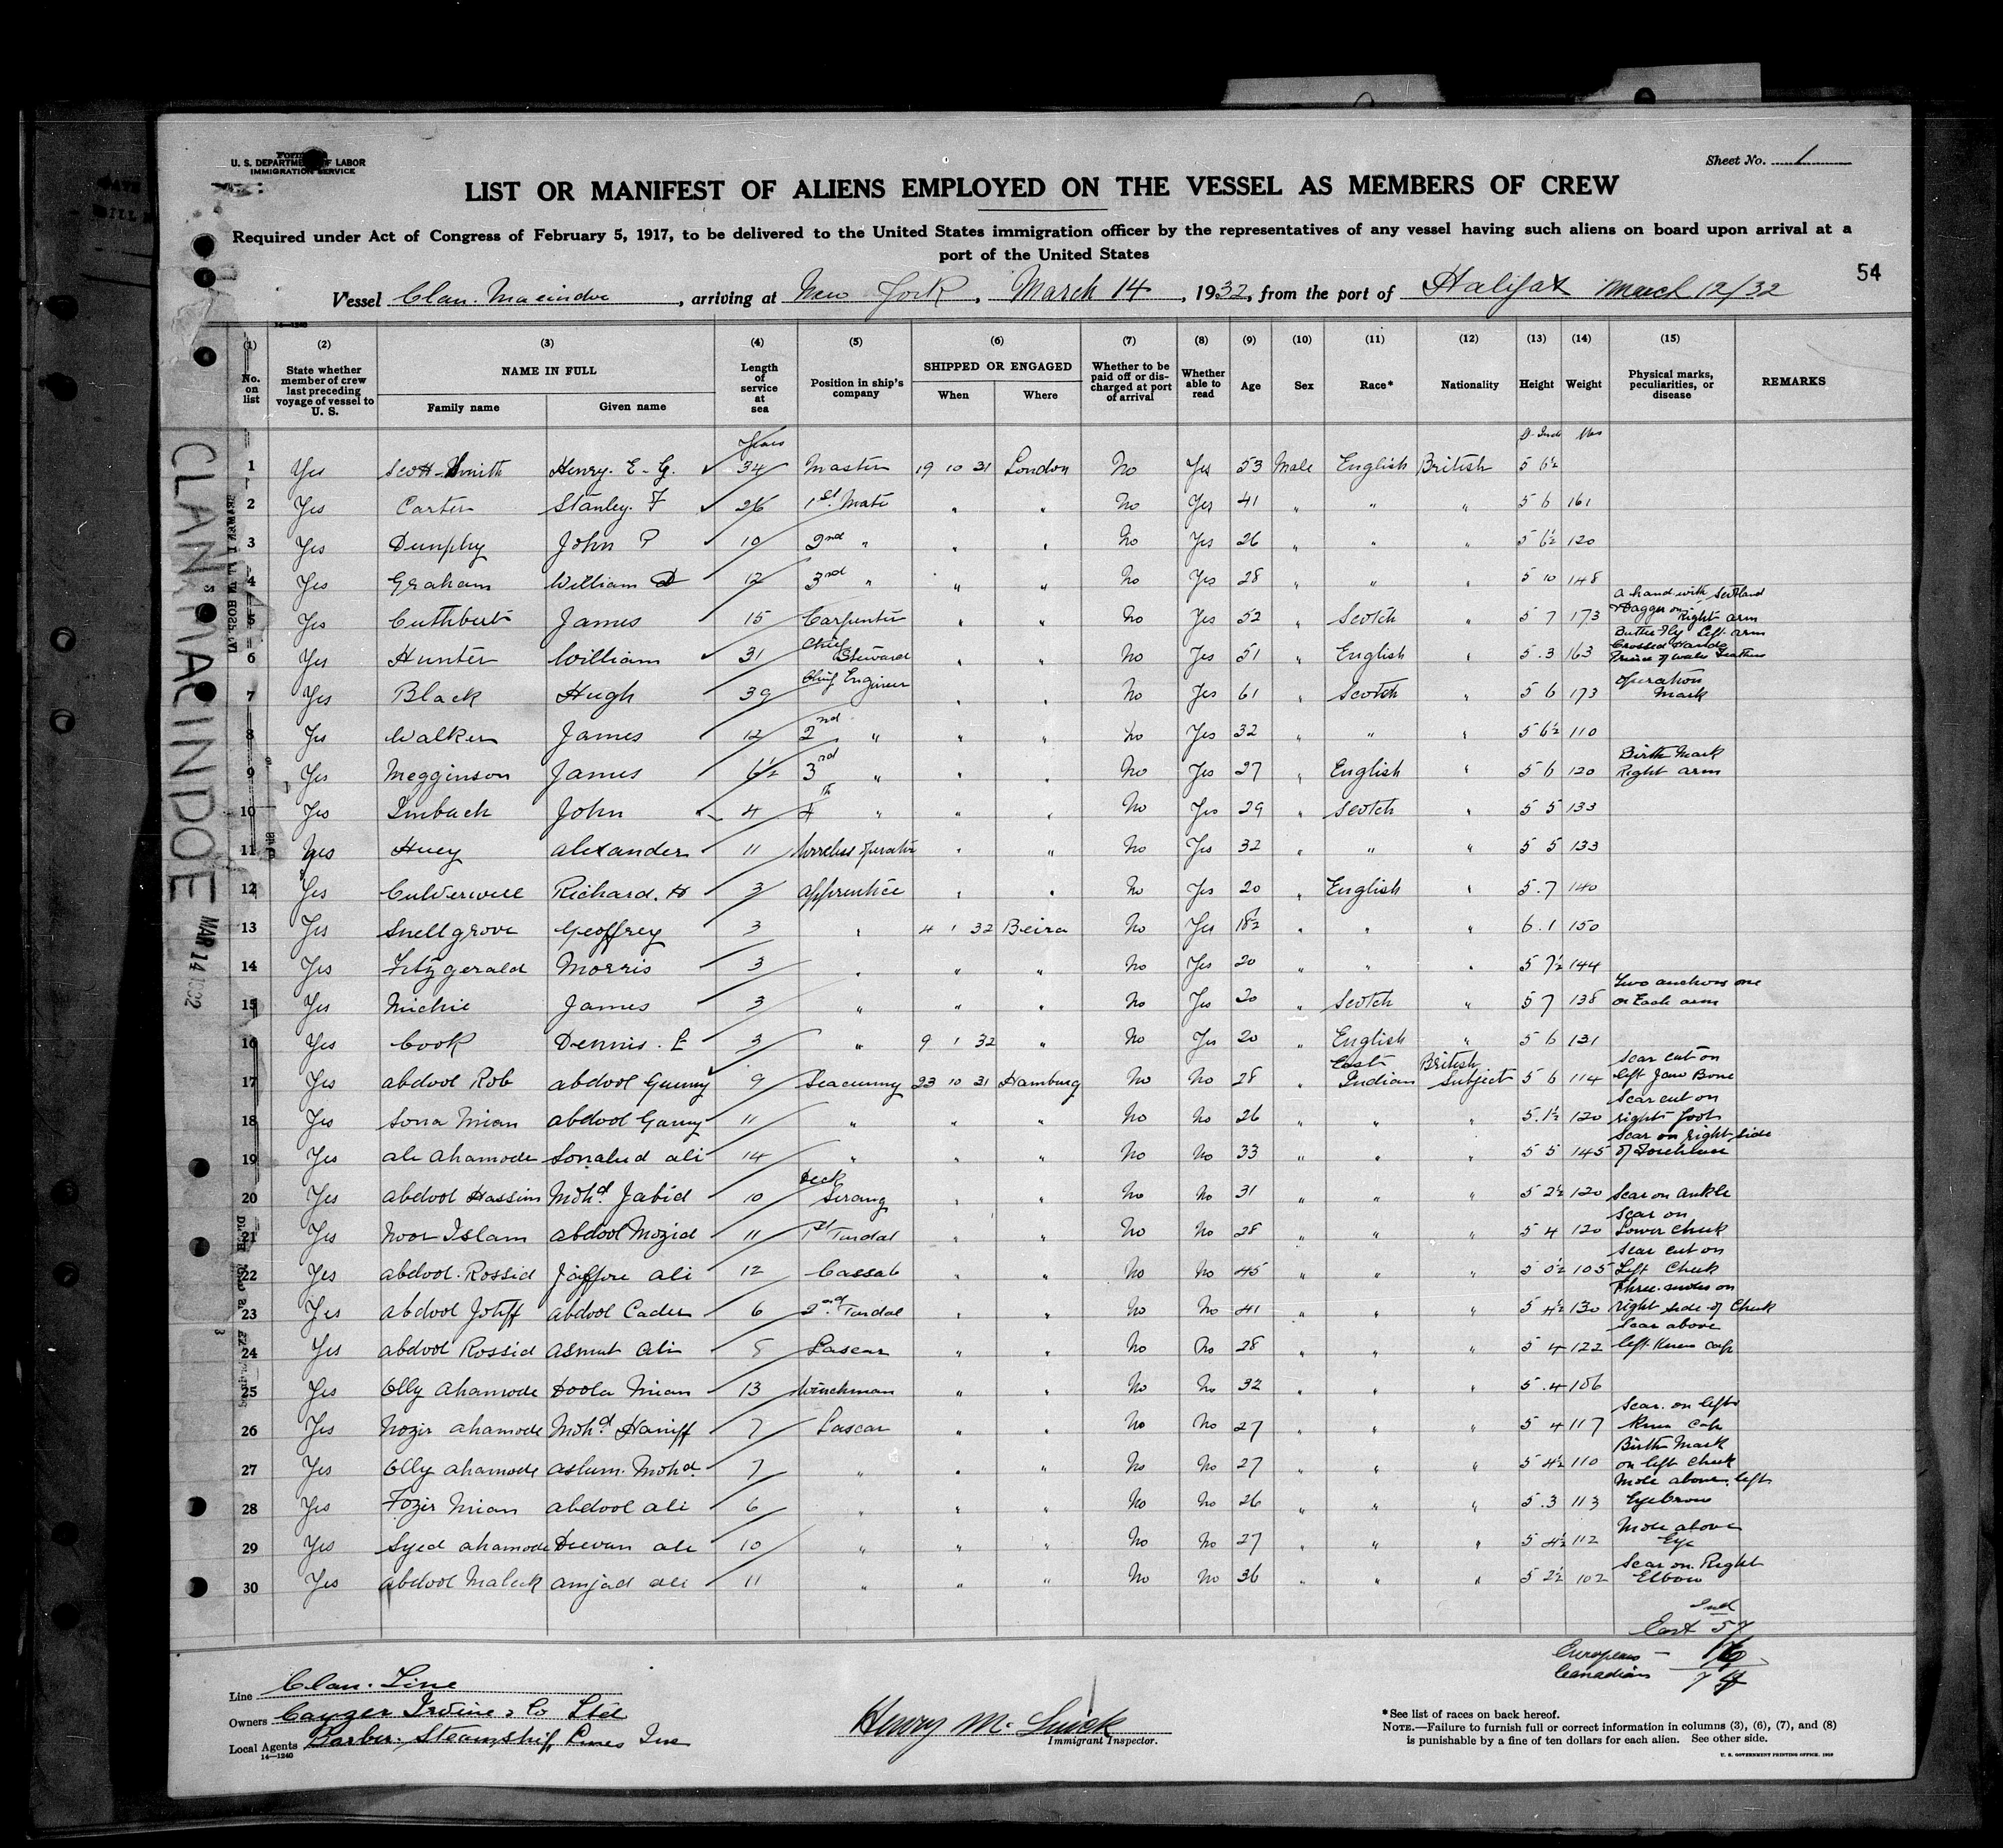 Form
U. S. DEPARTMENT OF LABOR
IMMIGRATION SERVICE
Sheet No. 1
LIST OR MANIFEST OF ALIENS EMPLOYED ON THE VESSEL AS MEMBERS OF CREW
Required under Act of Congress of February 5, 1917, to be delivered to the United States immigration officer by the representatives of any vessel having such aliens on board upon arrival at a
port of the United States
54
Vessel Clan. Macindoe, arriving at New York, March 14, 1932, from the port of Halifax March 12/32
(1) (2) (3) (4) (5) (6) (7) (8) (9) (10) (11) (12) (13) (14) (15)
No. on list | State whether member of crew last preceding voyage of vessel to U. S. | NAME IN FULL Family name Given name | Length of service at sea | Position in ship's company | SHIPPED OR ENGAGED When Where | Whether to be paid off or discharged at port of arrival | Whether able to read | Age | Sex | Race* | Nationality | Height | Weight | Physical marks, peculiarities, or disease | REMARKS
Years
1 Yes Scott-Smith Henry. E. G. 34 Master 19 10 31 London No Yes 53 Male English British 5 6½
2 Yes Carter Stanley. F 26 1st Mate " " No Yes 41 " " " 5 6 161
3 Yes Dunphy John P 10 2nd " " " No Yes 26 " " " 5 6½ 120
4 Yes Graham William D 12 3rd " " " No Yes 28 " " " 5 10 148
5 Yes Cuthbert James 15 Carpenter " " No Yes 52 " Scotch " 5 7 173 a hand with Scotland Dagger on Right arm
6 Yes Hunter William 31 Chief Steward " " No Yes 51 " English " 5.3 163 Butterfly Left arm Crossed Hands Prince of Wales Feathers
7 Yes Black Hugh 39 Chief Engineer " " No Yes 61 " Scotch " 5 6 173 operation Mark
8 Yes Walker James 12 2nd " " " No Yes 32 " " " 5 6½ 110
9 Yes Megginson James 6½ 3rd " " " No Yes 27 " English " 5 6 120 Birth Mark Right arm
10 Yes Imbach John 4 4th " " " No Yes 29 " Scotch " 5 5 133
11 Yes Huey Alexander 11 Wireless operator " " No Yes 32 " " " 5 5 133
12 Yes Culverwell Richard. H 3 apprentice " " No Yes 20 " English " 5.7 140
13 Yes Snellgrove Geoffrey 3 " 4 1 32 Beira No Yes 18½ " " " 6.1 150
14 Yes Fitzgerald Morris 3 " " " No Yes 20 " " " 5 7½ 144
15 Yes Michie James 3 " " " No Yes 20 " Scotch " 5 7 138 Two anchors one on Each arm
16 Yes Cook Dennis. L 3 " 9 1 32 " No Yes 20 " English " 5 6 131
17 Yes Abdool Rob abdool Gunny 9 Seacunny 23 10 31 Hamburg No No 28 " East Indian British Subject 5 6 114 Scar cut on left Jaw Bone
18 Yes Sona Mian abdool Ganny 11 " " " No No 26 " " " 5.1½ 120 Scar cut on right foot
19 Yes ale ahamode Sonalud ali 14 " " " No No 33 " " " 5 5 145 Scar on right side of Forehead
20 Yes abdool Hassim Mohd Jabid 10 Deck Serang " " No No 31 " " " 5 2½ 120 Scar on ankle
21 Yes Noor Islam abdool Mozid 11 1st Tindal " " No No 28 " " " 5 4 120 Scar on Lower Cheek
22 Yes abdool. Rossid Jaffore ali 12 Cassab " " No No 45 " " " 5 0½ 105 Scar cut on Left Cheek
23 Yes abdool Jotiff abdool Cader 6 2nd Tindal " " No No 41 " " " 5 4½ 130 Three moles on right side of Cheek
24 Yes abdool Rossid asmut ali 5 Lascar " " No No 28 " " " 5 4 122 Scar above left Knee cap
25 Yes Olly ahamode Doola Mian 13 Winchman " " No No 32 " " " 5.4 106
26 Yes Nozir ahamode Mohd Haniff 7 Lascar " " No No 27 " " " 5 4 117 Scar. on left Knee Cap
27 Yes Olly ahamode aslum. Mohd. 7 " " " No No 27 " " " 5 4½ 110 Birth Mark on left cheek
28 Yes Fozir Mian abdool ali 6 " " " No No 26 " " " 5.3 113 Mole above left Eyebrow
29 Yes Syed ahamode Dewan ale 10 " " " No No 27 " " " 5 4½ 112 Mole above Eye
30 Yes abdool Maleck amjad ali 11 " " " No No 36 " " " 5 2½ 102 Scar on Right Elbow
East Ind 57
European — 16
Canadian
Line Clan. Line
Owners Cayzer Irvine & Co Ltd
Local Agents Barber. Steamship Lines Inc
14—1240
Immigrant Inspector.
*See list of races on back hereof.
NOTE.—Failure to furnish full or correct information in columns (3), (6), (7), and (8)
is punishable by a fine of ten dollars for each alien. See other side.
U. S. GOVERNMENT PRINTING OFFICE
CLAN MACINDOE
MAR 14 1932